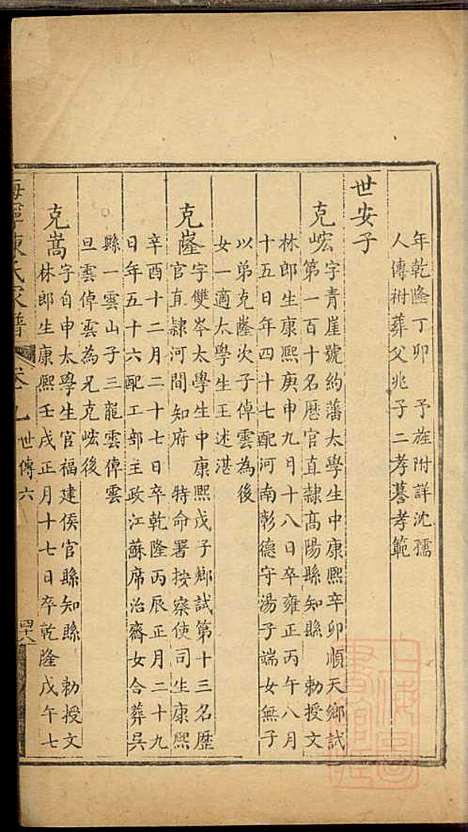 年乾隆丁卯　予旌附詳沈孺
人傳祔葬父兆子二孝墓孝範
世安子
克峵字青崖號約藩太學生中康熙辛卯順天鄉試
第一百十名厯官直隷高陽縣知縣　勅授文
林郎生康熙庚申九月十八日卒雍正丙午八月
十五日年四十七配河南彰德守湯子端女無子
以弟克嶐次子倬雲為後
女一適太學生王述湛
克嶐字雙岑太學生中康熙戊子鄉試第十三名歴
官直隷河間知府　特命署按察使司生康熙
辛酉十二月二十七日卒乾隆丙辰正月二十九
日年五十六配工部主政江蘇席治齋女合葬吳
縣一雲山子三龍雲倬雲
旦雲倬雲為兄克峵後
克嵩字自申太學生官福建侯官縣知縣　勅授文
林郎生康熙壬戌正月十七日卒乾隆戊午七
海寧陳氏家譜　卷九　世傳六